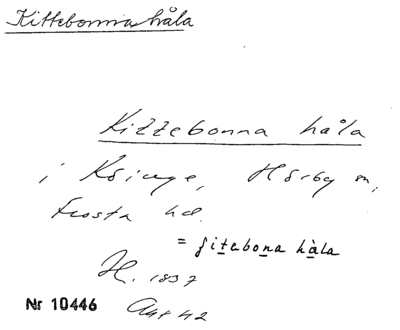 Kittebonna håla
Kittebonna håla
i Ksinge, Hörby sn,
Frosta hd.
= fitebona hàla
H. 1837
Nr 10446